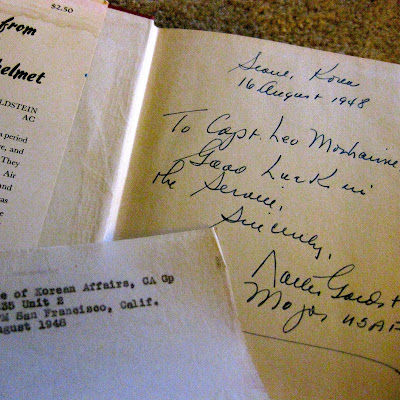 $2.50
from
helmet
LDSTEIN
AC
a period
e, and
They
Air
and
was
e
Seoul, Korea
16 August 1948
To Capt. Leo
Good Luck in
the Service.
Sincerely,
Major USAF
e of Korean Affairs, CA Gp
35 Unit 2
PM San Francisco, Calif.
ugust 1948